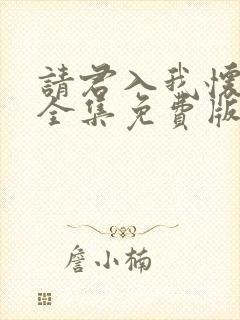 請君入我懷
全集免費版
詹小楠